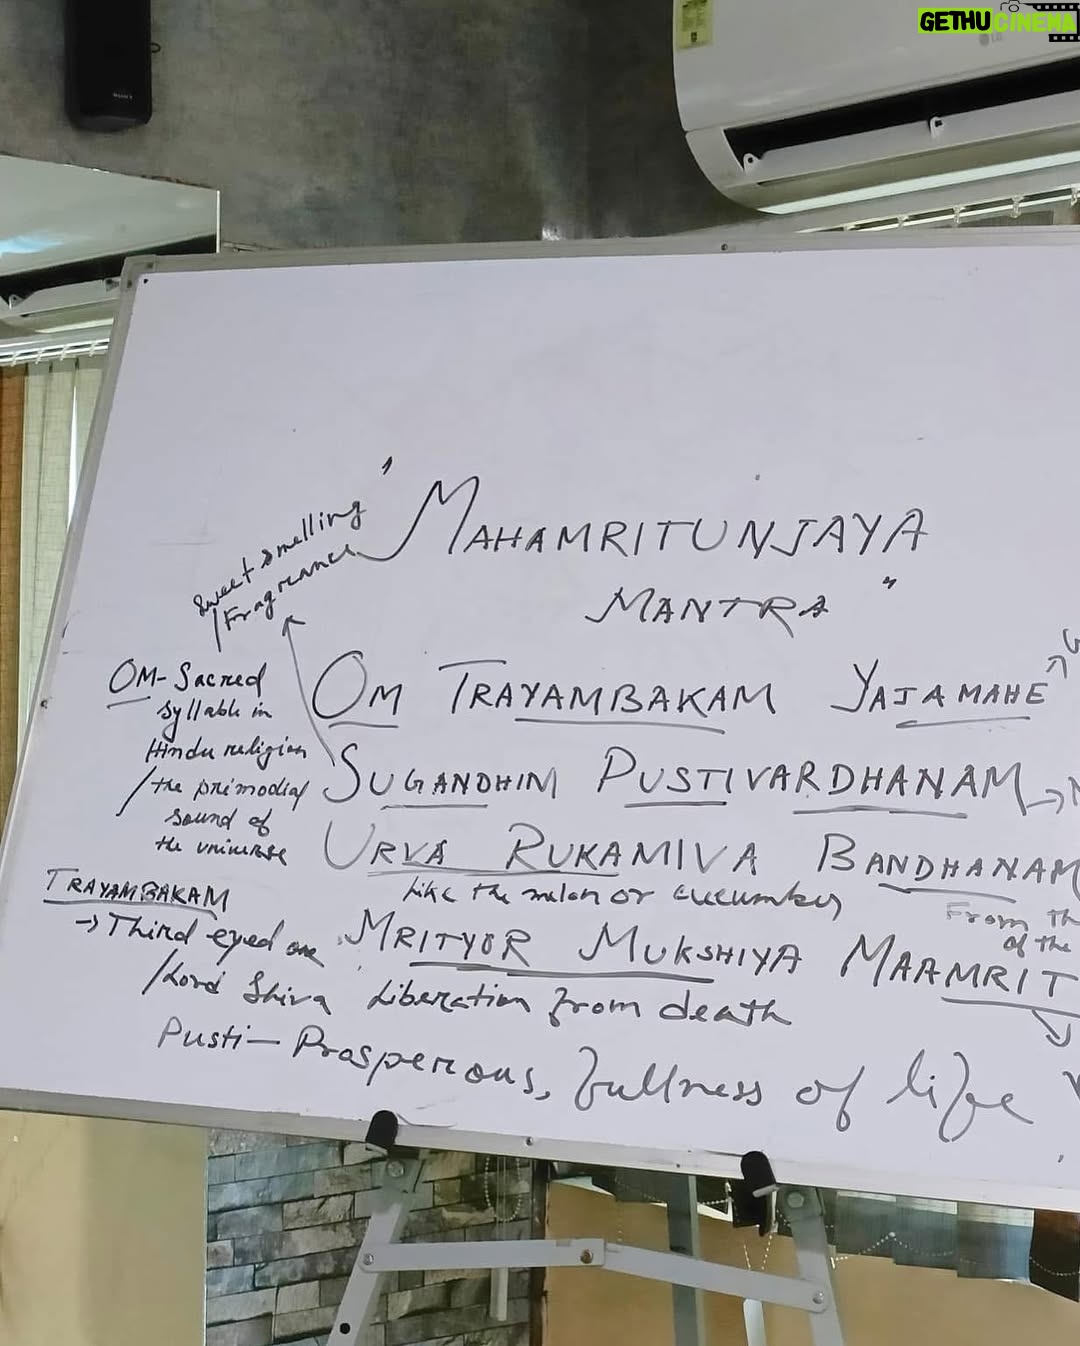 GETHU CINEMA
LG
SONY
" MAHAMRITUNJAYA
MANTRA "
Sweet smelling
/Fragrance
OM TRAYAMBAKAM YAJAMAHE
OM - Sacred
syllable in
Hindu religion
/the primodial
sound of
the universe
SUGANDHIM PUSTIVARDHANAM
URVA RUKAMIVA BANDHANAM
Like the melon or cucumber
From th
of the
TRAYAMBAKAM
→ Third eyed one
/Lord Shiva
MRITYOR MUKSHIYA MAAMRIT
Liberation from death
Pusti — Prosperous, fullness of life